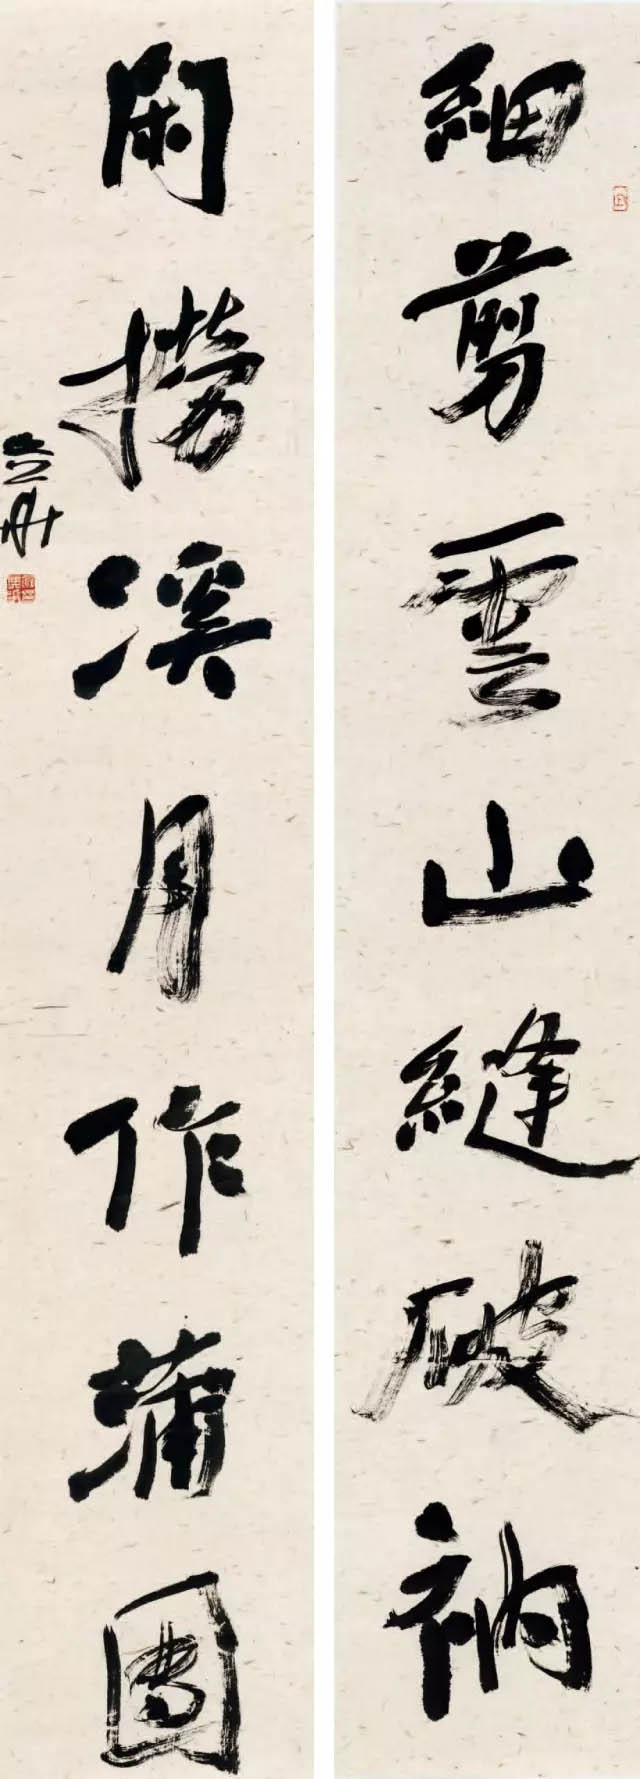 細剪雲山縫破衲
閑撈溪月作蒲團